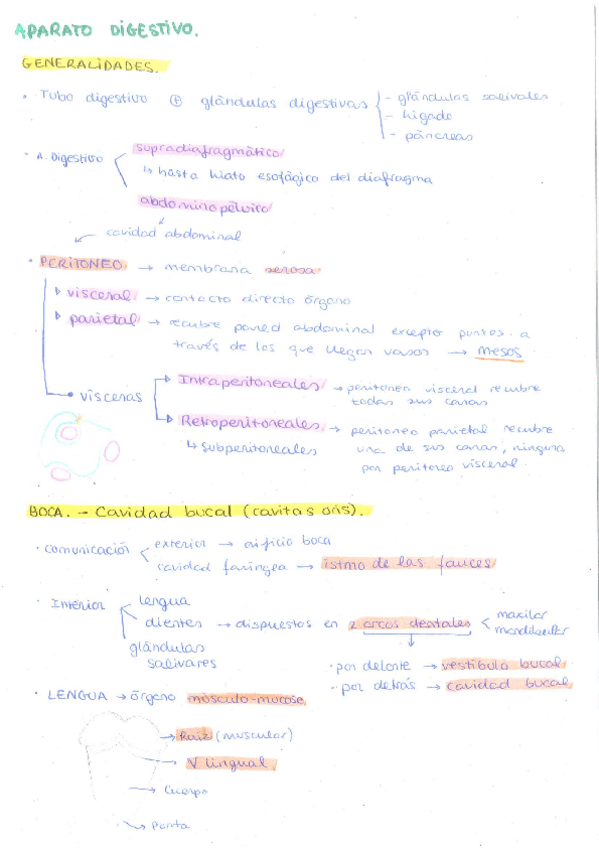 APARATO DIGESTIVO.
GENERALIDADES.
• Tubo digestivo ⊕ glándulas digestivas - glándulas salivales
- hígado
- páncreas
• A. Digestivo
supradiafragmático
↳ hasta hiato esofágico del diafragma
abdominopélvico
cavidad abdominal
• PERITONEO → membrana serosa
visceral → contacto directo órgano
parietal → recubre pared abdominal excepto puntos a
través de los que llegan vasos → mesos
vísceras
Intraperitoneales → peritoneo visceral recubre
todas sus caras
Retroperitoneales → peritoneo parietal recubre
una de sus caras, ninguna
por peritoneo visceral
↳ subperitoneales
BOCA. - Cavidad bucal (cavitas oris).
• comunicación
exterior → orificio boca
cavidad faríngea → istmo de las fauces
• Interior
lengua
dientes → dispuestos en 2 arcos dentales
maxilar
mandibular
glándulas
salivares
• por delante → vestíbulo bucal
• por detrás → cavidad bucal
• LENGUA → órgano músculo-mucoso
→ Raíz (muscular)
→ V lingual
→ Cuerpo
→ Punta